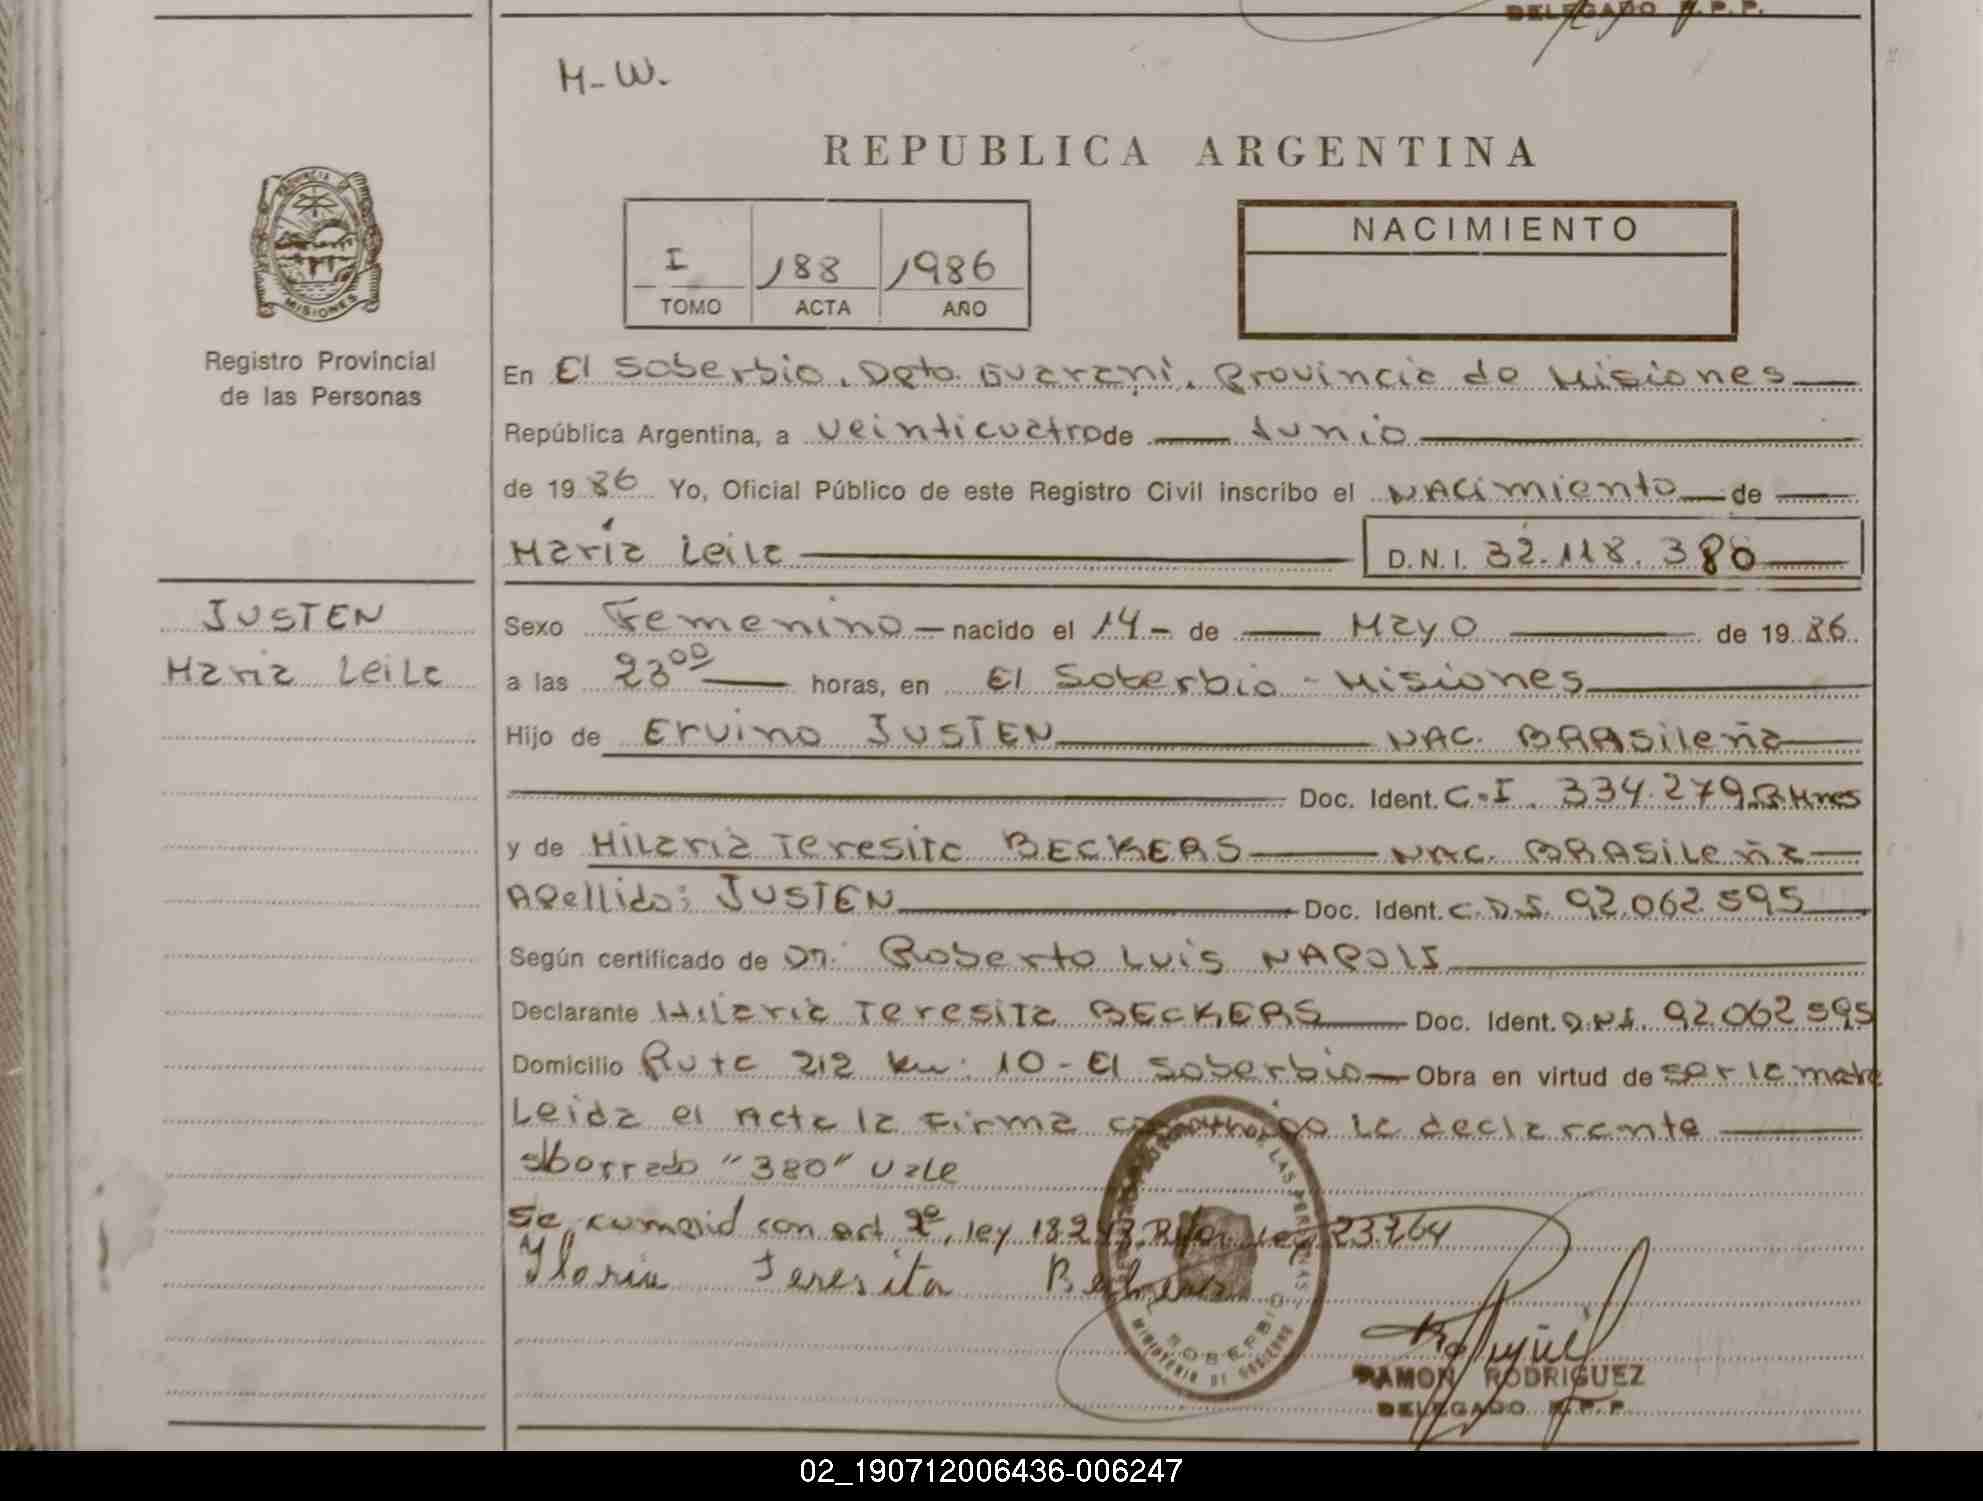 DELEGADO R.P.P.
H-W.
REPUBLICA ARGENTINA
PROVINCIA DE
MISIONES
I 188 1986
TOMO ACTA AÑO
NACIMIENTO
Registro Provincial
de las Personas
En El Soberbio, Dpto. Guaraní, Provincia de Misiones
República Argentina, a veinticuatro de Junio
de 1986 Yo, Oficial Público de este Registro Civil inscribo el NACimiento de
María Leila D.N.I. 32.118.380
JUSTEN
Maria Leila
Sexo Femenino - nacido el 14 - de Mayo de 1986
a las 23 00 horas, en El Soberbio - Misiones
Hijo de Ervino JUSTEN NAC. BRASileña
Doc. Ident. C.I. 334.279
y de Hilaria Teresita BECKERS NAC. BRASileña
Apellido: JUSTEN Doc. Ident. C.D.S. 92.062.595
Según certificado de Dr. Roberto Luis NAPOLI
Declarante Hilaria Teresita BECKERS Doc. Ident. D.N.I. 92.062595
Domicilio Ruta 212 Km: 10 - El Soberbio Obra en virtud de ser la madre
Leida el Acta la Firma conmigo la declarante
borrado "380" vale
Se cumplió con art 2º, ley 18.243. Ley 23.264
Ilaria Teresita Bekers
LAS PERSONAS
SOBERBIO
MINISTERIO DE GOBIERNO
RAMON RODRIGUEZ
DELEGADO R.P.P.
02_190712006436-006247